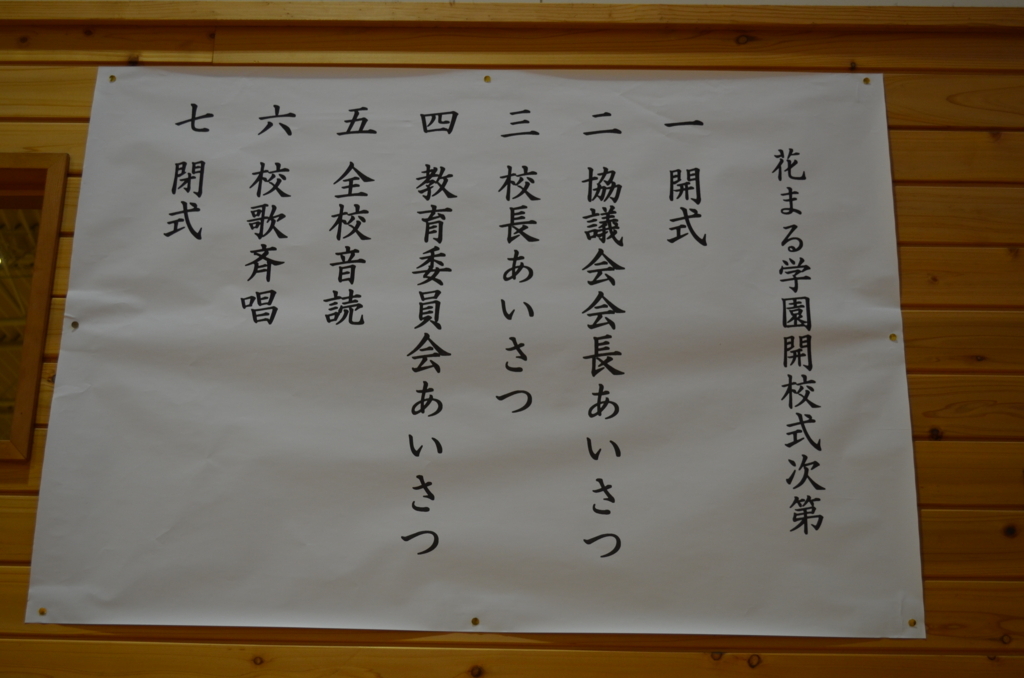 花まる学園開校式次第
一 開式
二 協議会会長あいさつ
三 校長あいさつ
四 教育委員会あいさつ
五 全校音読
六 校歌斉唱
七 閉式